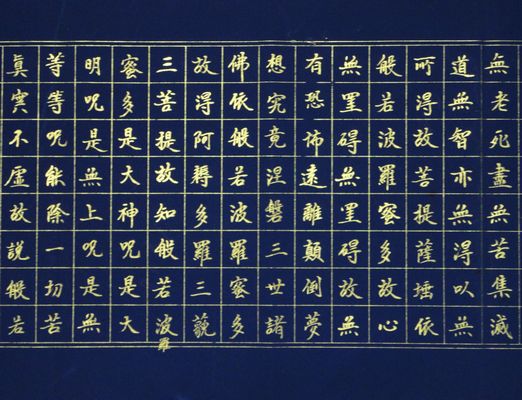 無老死盡無苦集滅
道無智亦無得以無
所得故菩提薩埵依
般若波羅蜜多故心
無罣礙無罣礙故無
有恐怖遠離顛倒夢
想究竟涅槃三世諸
佛依般若波羅蜜多
故得阿耨多羅三藐
三菩提故知般若波羅
蜜多是大神呪是大
明呪是無上呪是無
等等呪能除一切苦
眞實不虛故說般若